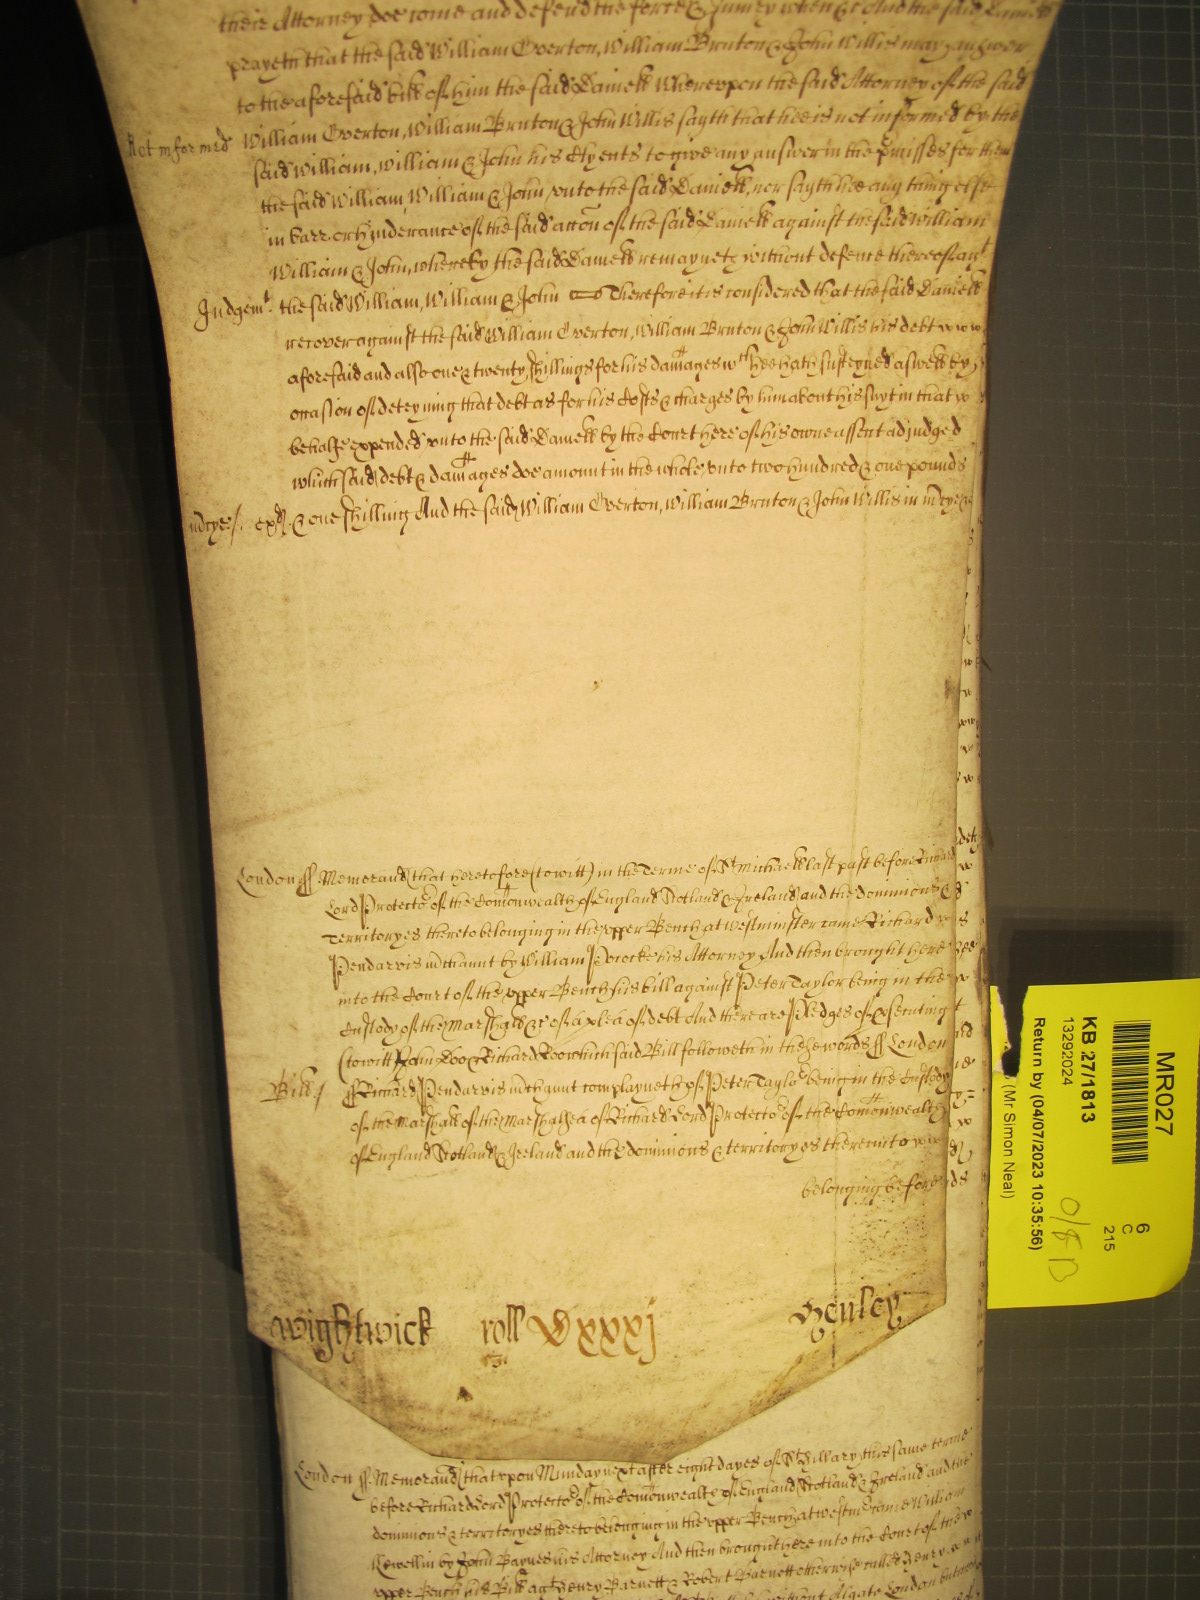 theire Attorney doe come and defend the force & Iniury when &c And the said Daniell
prayeth that the said William Overton, William Bruton & John Willis may answer
to the aforesaid bill of him the said Daniell Whereupon the said Attorney of the said
Not informed William Overton, William Bruton & John Willis sayth that hee is not informed by the
said William, William & John his Clyents to give any answer in the p'misses for them
the said William, William & John, unto the said Daniell, nor sayth hee any thing else
in barr or hinderance of the said accon of the said Daniell against the said William
William & John, whereby the said Daniell remayneth without defence thereof agt
Judgemt. the said William, William & John Therefore it is considered that the said Daniell
recover against the said William Overton, William Bruton & John Willis his debt
aforesaid and also one & twenty shillings for his damages wch hee hath susteyned aswell by
occasion of deteyning that debt as for his Costs & charges by him about his suyt in that
behalfe expended unto the said Daniell by the Court here of his owne assent adjudged
which said debt & damages doe amount in the whole unto two hundred & one pounds
& one shilling And the said William Overton, William Bruton & John Willis in mcye &c
London ss Memorand that heretofore (to witt) in the Terme of St Michaell last past before Richard
Lord Protector of the Comonwealth of England Scotland & Ireland and the dominions &
Territoryes thereto belonging in the upper Bench at Westminster came Richard
Pendarvis mchaunt by William Pococke his Attorney And then brought here
into the Court of the upper Bench his bill against Peter Taylor being in the
Custody of the Marshall &c of a plea of debt And there are Pledges of p'secuting
(to witt) John Doo & Richard Roo which said Bill followeth in these words ss London
Bill ss Richard Pendarvis mchaunt complayneth of Peter Taylor being in the Custody
of the Marshall of the Marshalsea of Richard Lord Protector of the Comonwealth
of England Scotland & Ireland and the dominions & territoryes thereunto
belonging before
Wightwick roll Dxxxj Henley
London ss Memorand that upon Munday next after eight dayes of St Hillary this same terme
before Richard Lord Protector of the Comonwealth of England Scotland & Ireland and the
dominions & territoryes thereto belonging in the upper Bench at Westmr came William
Lewellin by John Baynes his Attorney And then brought here into the Court of the
upper Bench his Bill agt Henry Barnett & Robert Barnett otherwise called Henry
without Algate London
MR027
6
C
215
KB 27/1813
13292024
Return by (04/07/2023 10:35:56)
(Mr Simon Neal)